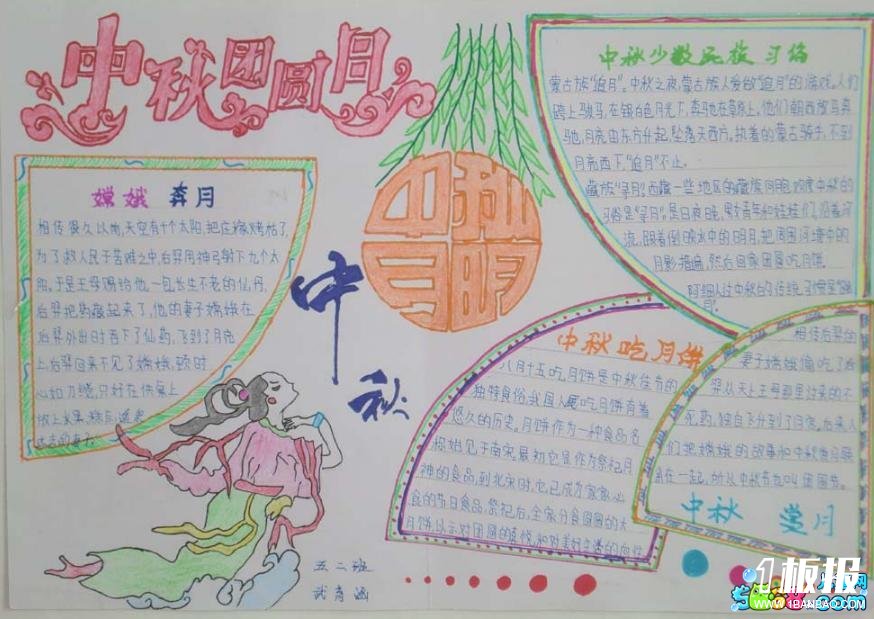 中秋团圆日
嫦娥 奔月
相传很久以前,天空有十个太阳,把庄稼烤枯了,
为了救人民于苦难之中,后羿用神弓射下九个太
阳。于是王母赐给他一包长生不老的仙丹,
后羿把药藏起来了,他的妻子嫦娥在
后羿外出时吞下了仙药,飞到了月亮
上,后羿回来不见了嫦娥,顿时
心如刀绞,只好在供桌上
放上水果,糕点,遥
中秋
月明
中
秋
五二班
中秋少数民族习俗
蒙古族"追月"。中秋之夜,蒙古族人爱做"追月"的游戏。人们
跨上骏马,在银白色月光下,奔驰在草原上。他们朝西放马奔
驰,月亮由东方升起,坠落于西方。执着的蒙古骑手,不到
月亮西下,"追月"不止。
藏族"寻月"西藏一些地区的藏族同胞欢度中秋的
习俗是"寻月"。是日夜晚,男女青年和娃娃们,沿着河
流,跟着倒映水中的明月,把周围河塘中的
月影 ,然后回家团圆吃月饼。
阿细人过中秋的传统习惯是"跳
月"
中秋吃月饼
八月十五吃月饼是中秋佳节的
独特食俗,我国人民吃月饼有着
悠久的历史。月饼作为一种食品名
称始见于南宋,最初它是作为祭祀月
神的食品,到北宋时,它已成为家家必
食的节日食品,祭祀后,全家分食圆圆的大
月饼,以示对团圆的喜悦,和对美好生活的向往
相传后羿的
妻子嫦娥偷吃了后
羿从天上王母那里讨来的不
死药,独自飞升到了月宫。后来人
们把嫦娥的故事和中秋夜月联
系在一起,所以中秋节也叫团圆节。
中秋 赏月
1板报
WWW.1BANBAO.COM
.com